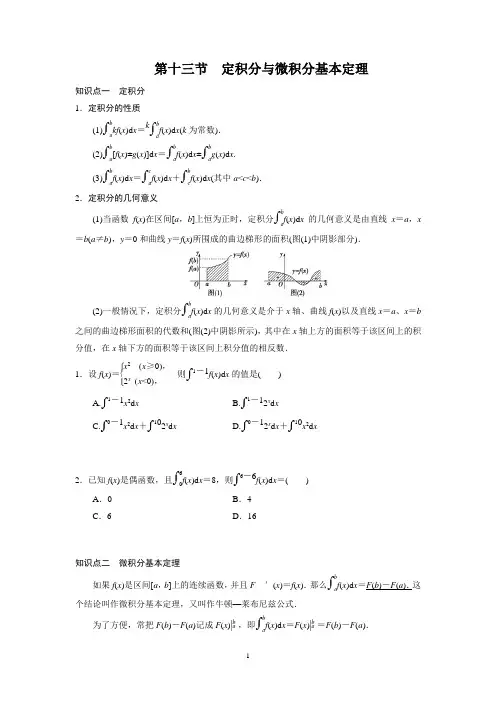 第十三节 定积分与微积分基本定理
知识点一 定积分
1．定积分的性质
(1)∫ᵇₐkf(x)dx＝k∫ᵇₐf(x)dx(k 为常数)．
(2)∫ᵇₐ[f(x)±g(x)]dx＝∫ᵇₐf(x)dx±∫ᵇₐg(x)dx.
(3)∫ᵇₐf(x)dx＝∫ᶜₐf(x)dx＋∫ᵇ꜀f(x)dx(其中 a<c<b)．
2．定积分的几何意义
(1)当函数 f(x)在区间[a，b]上恒为正时，定积分∫ᵇₐf(x)dx 的几何意义是由直线 x＝a，x
＝b(a≠b)，y＝0 和曲线 y＝f(x)所围成的曲边梯形的面积(图(1)中阴影部分)．
y y=f(x) f(b) f(a) O a b x 图(1)
y y=f(x) O a b x 图(2)
(2)一般情况下，定积分∫ᵇₐf(x)dx 的几何意义是介于 x 轴、曲线 f(x)以及直线 x＝a、x＝b
之间的曲边梯形面积的代数和(图(2)中阴影所示)，其中在 x 轴上方的面积等于该区间上的积
分值，在 x 轴下方的面积等于该区间上积分值的相反数．
1．设 f(x)＝{x² (x≥0)，2ˣ (x<0)， 则∫1－1f(x)dx 的值是( )
A.∫1－1x²dx B.∫1－12ˣdx
C.∫0－1x²dx＋∫102ˣdx D.∫0－12ˣdx＋∫10x²dx
2．已知 f(x)是偶函数，且∫⁶₀f(x)dx＝8，则∫6－6f(x)dx＝( )
A．0 B．4
C．6 D．16
知识点二 微积分基本定理
如果 f(x)是区间[a，b]上的连续函数，并且 F ′(x)＝f(x)．那么∫ᵇₐf(x)dx＝F(b)－F(a)．这
个结论叫作微积分基本定理，又叫作牛顿—莱布尼兹公式．
为了方便，常把 F(b)－F(a)记成 F(x)|ᵇₐ，即∫ᵇₐf(x)dx＝F(x)|ᵇₐ＝F(b)－F(a)．
1